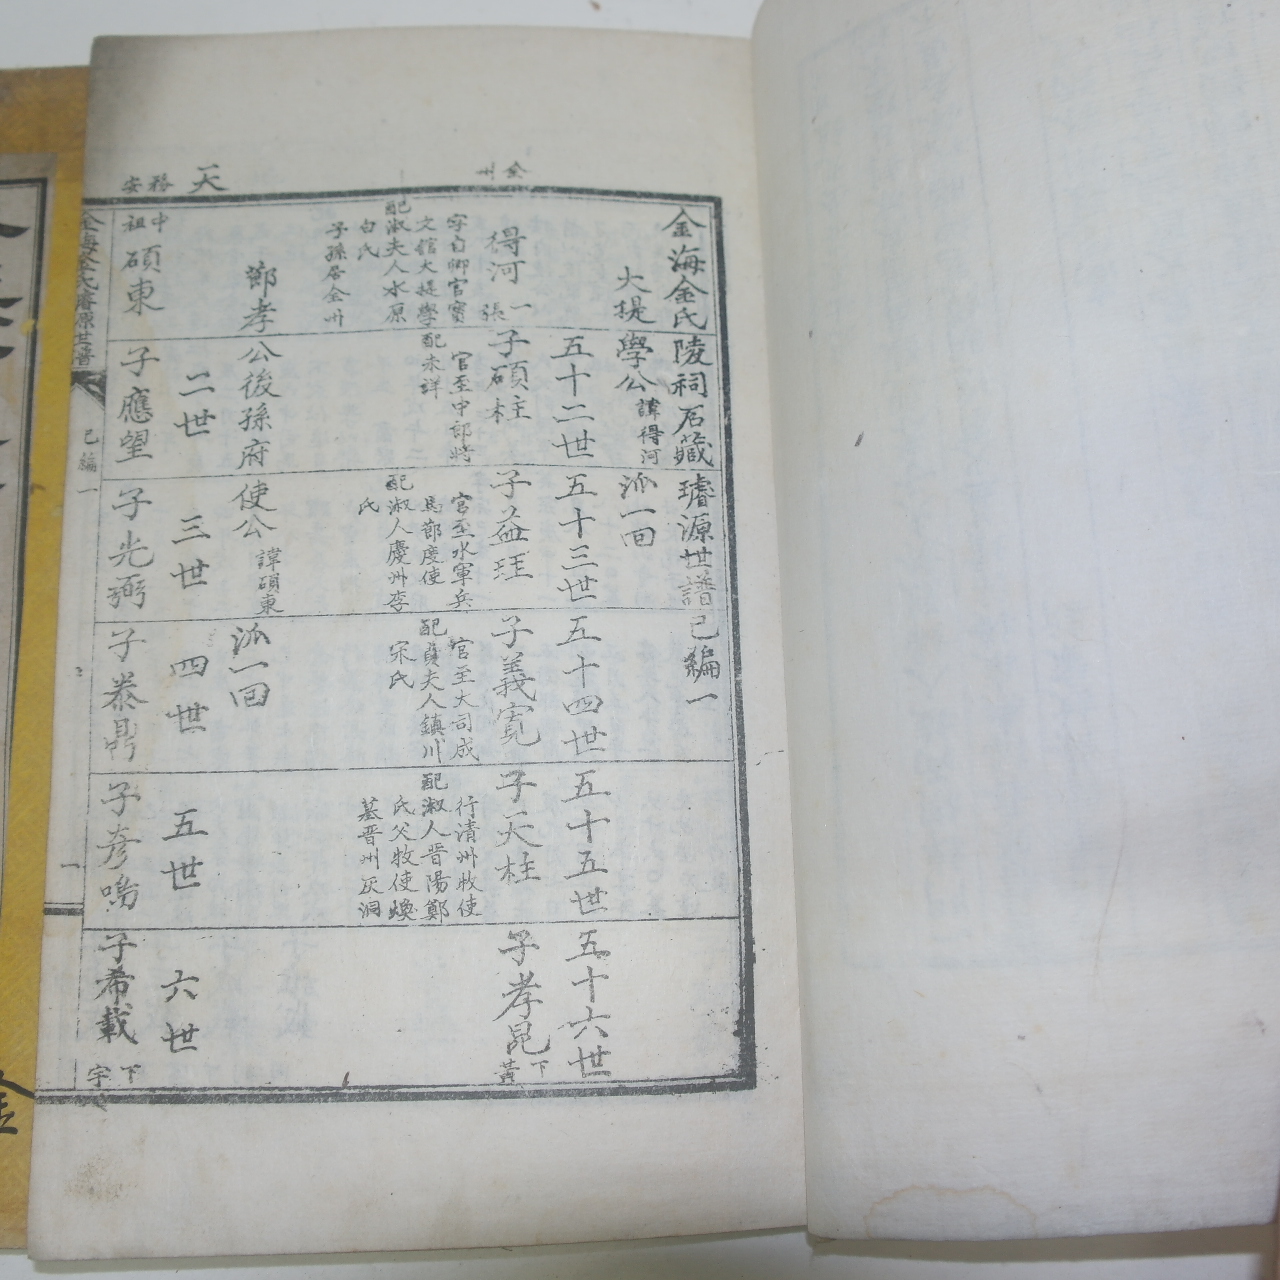 金海金氏陵祠石藏璿源世譜己編一
大提學公諱得河派一回
五十二世
五十三世
五十四世
五十五世
五十六世
金州
得河
一張
字自卿官寶
文館大提學
配淑夫人水原
白氏
子孫居金州
子碩柱
官至中郎將
配未詳
子益珏
官至水軍兵
馬節度使
配淑人慶州李
氏
子義寬
官至大司成
配貞夫人鎮川
宋氏
子天柱
行清州牧使
配淑人晋陽鄭
氏父牧使煥
墓晋州灰洞
子孝昆
下黃
節孝公後孫府使公諱碩東派一回
二世
三世
四世
五世
六世
天
務安
中祖
碩東
子應望
子光弼
子泰鼎
子彦鳴
子希載
下宇
金海金氏璿源世譜
己編一
一
金